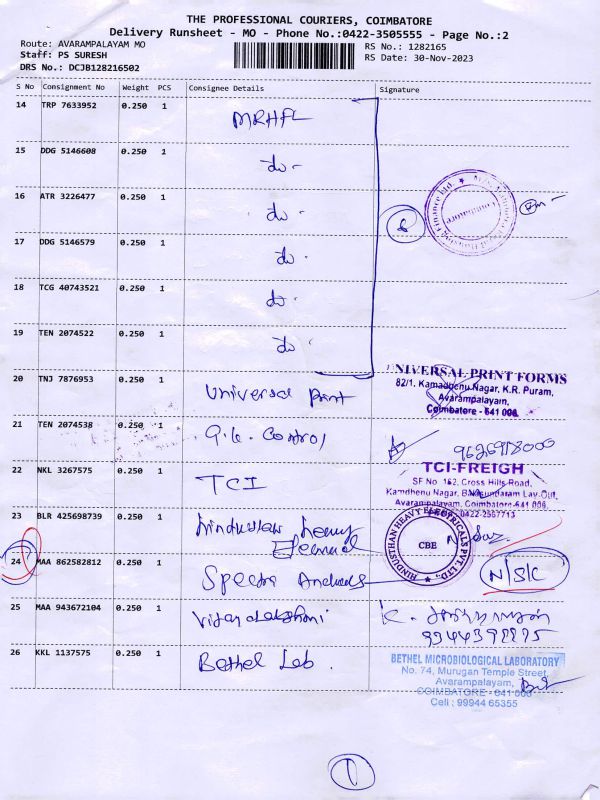 THE PROFESSIONAL COURIERS, COIMBATORE
Delivery Runsheet - MO - Phone No.:0422-3505555 - Page No.:2
Route: AVARAMPALAYAM MO
RS No.: 1282165
Staff: PS SURESH
RS Date: 30-Nov-2023
DRS No.: DCJB128216502
S No Consignment No Weight PCS Consignee Details Signature
14 TRP 7633952 0.250 1 MRHFL
15 DDG 5146608 0.250 1 do -
16 ATR 3226477 0.250 1 do -
17 DDG 5146579 0.250 1 do -
18 TCG 40743521 0.250 1 do -
19 TEN 2074522 0.250 1 do -
6
Coimbatore
20 TNJ 7876953 0.250 1 Universal Print
UNIVERSAL PRINT FORMS
82/1, Kamadhenu Nagar, K.R. Puram,
Avarampalayam,
Coimbatore - 641 006.
21 TEN 2074538 0.250 1 Control
22 NKL 3267575 0.250 1 TCI
TCI-FREIGH
SF No. 162, Cross Hills Road,
Kamdhenu Nagar, Lay-Out,
Avarampalayam, Coimbatore-641 006
23 BLR 425698739 0.250 1 Hindustan heavy
Electrical
HINDUSTHAN HEAVY ELECTRICALS PVT. LTD.
CBE
24 MAA 862582812 0.250 1 Spectra
N/S/C
25 MAA 943672104 0.250 1 Vijayalakshmi
K.
26 KKL 1137575 0.250 1 Bethel Lab.
BETHEL MICROBIOLOGICAL LABORATORY
No. 74, Murugan Temple Street,
Avarampalayam,
COIMBATORE - 641 006
Cell : 99944 65355
1